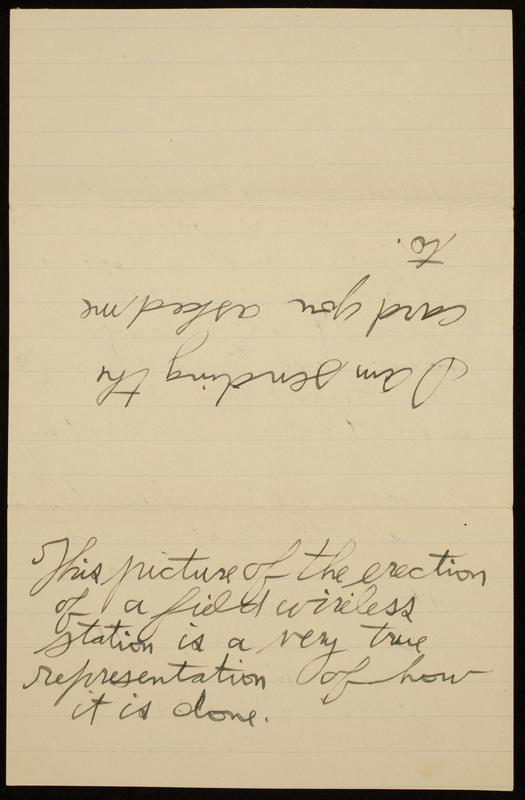 I am sending the
card you asked me
to.
This picture of the erection
of a field wireless
station is a very true
representation of how
it is done.